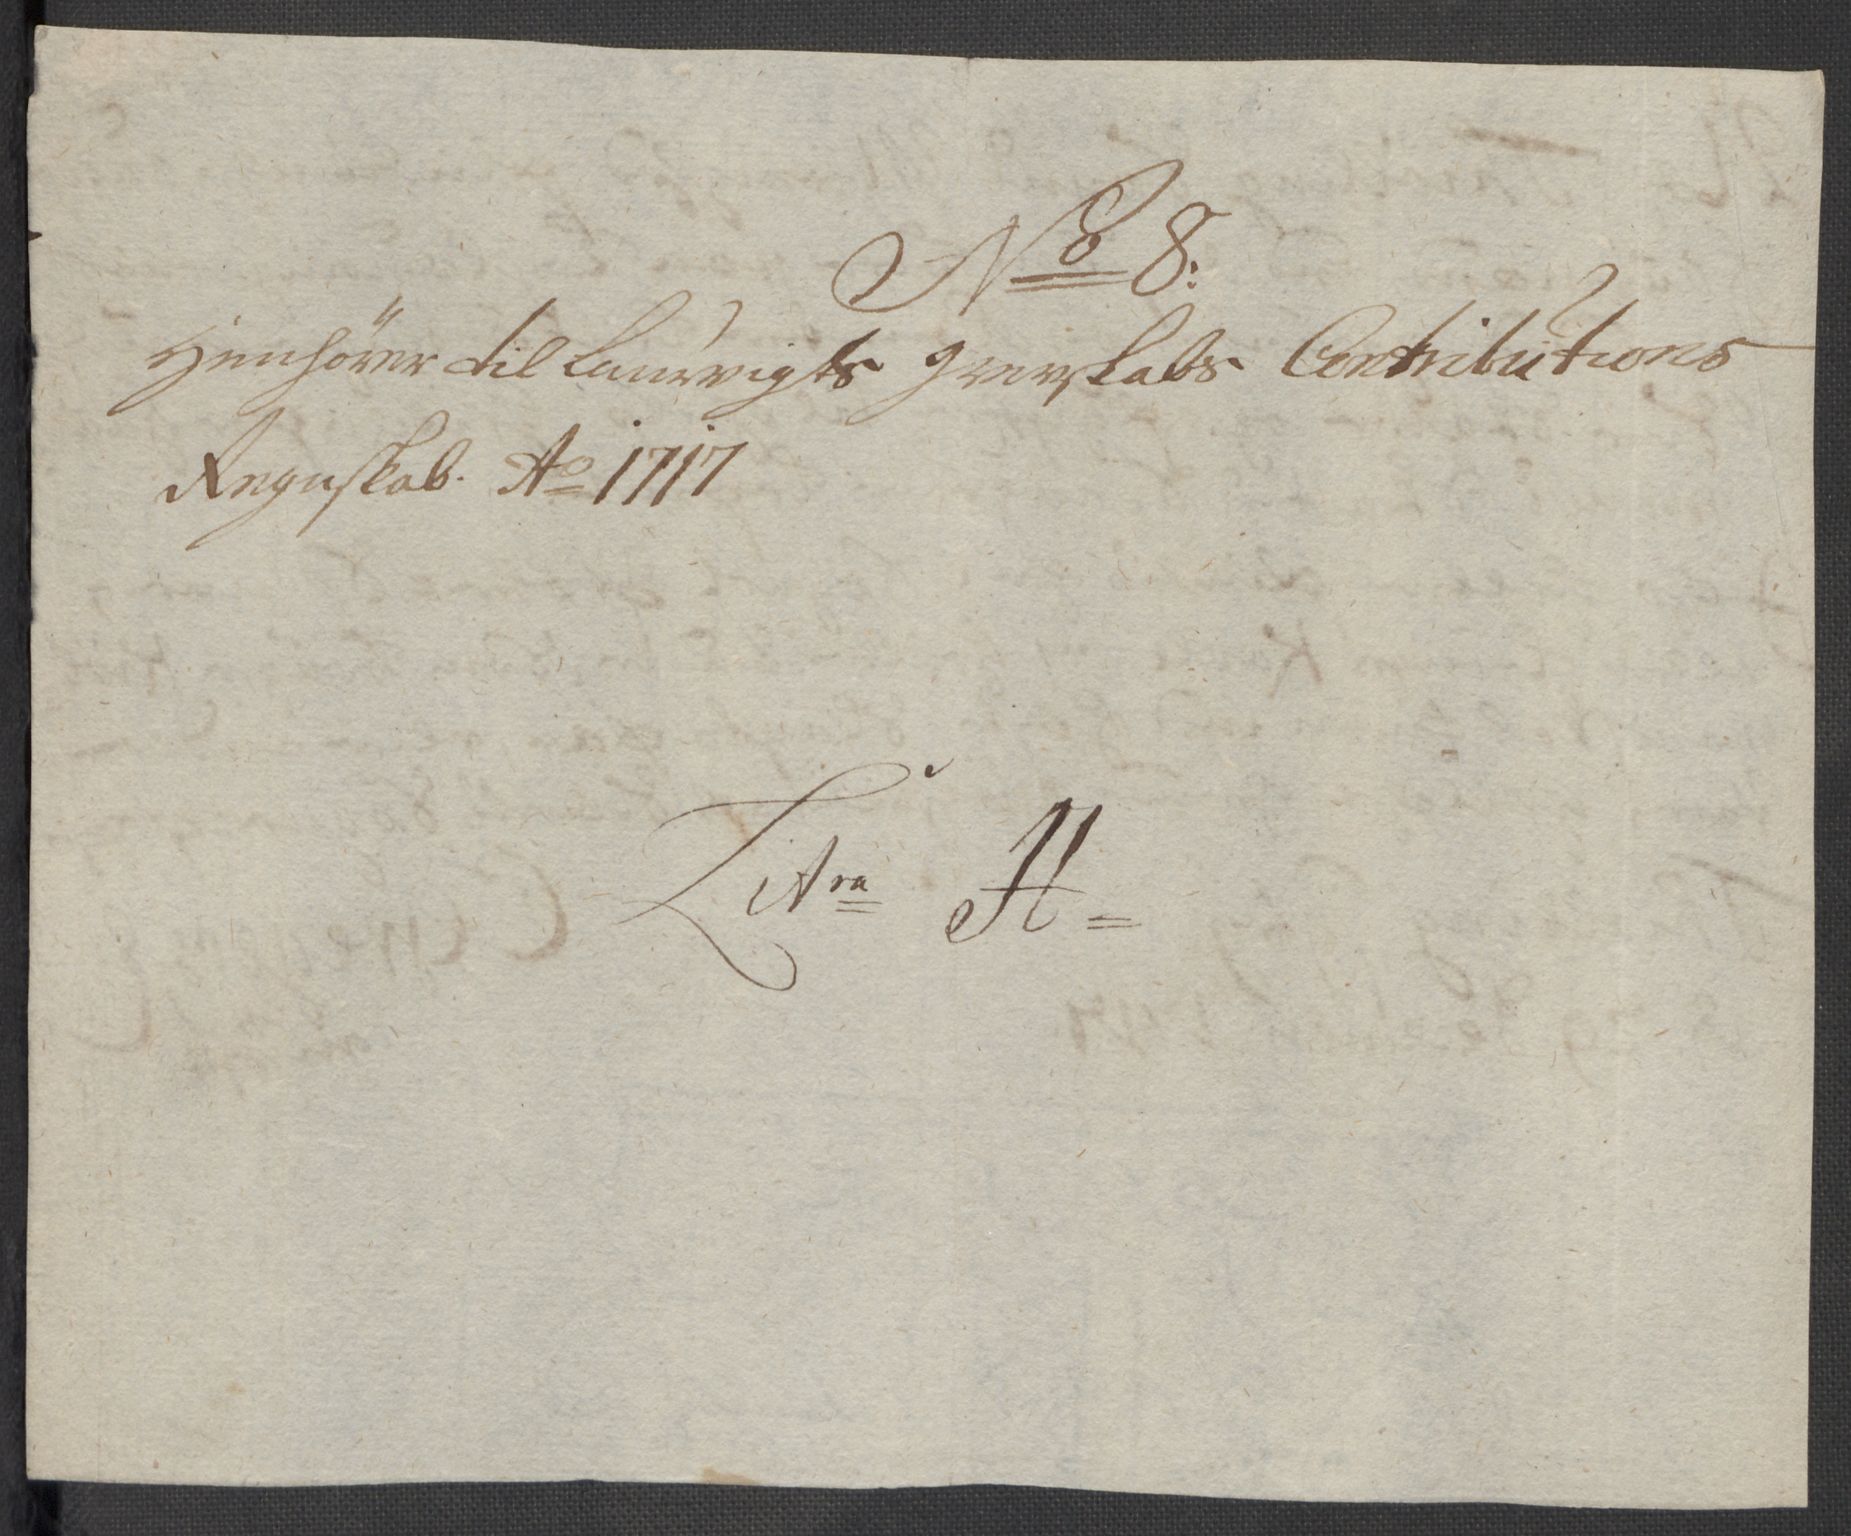 No 8:
Henhörer til Laurvigs Grevskabs Contributions
Regnskab. Ao 1717
Litra A